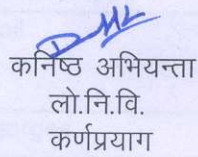 कनिष्ठ अभियन्ता
लो.नि.वि.
कर्णप्रयाग